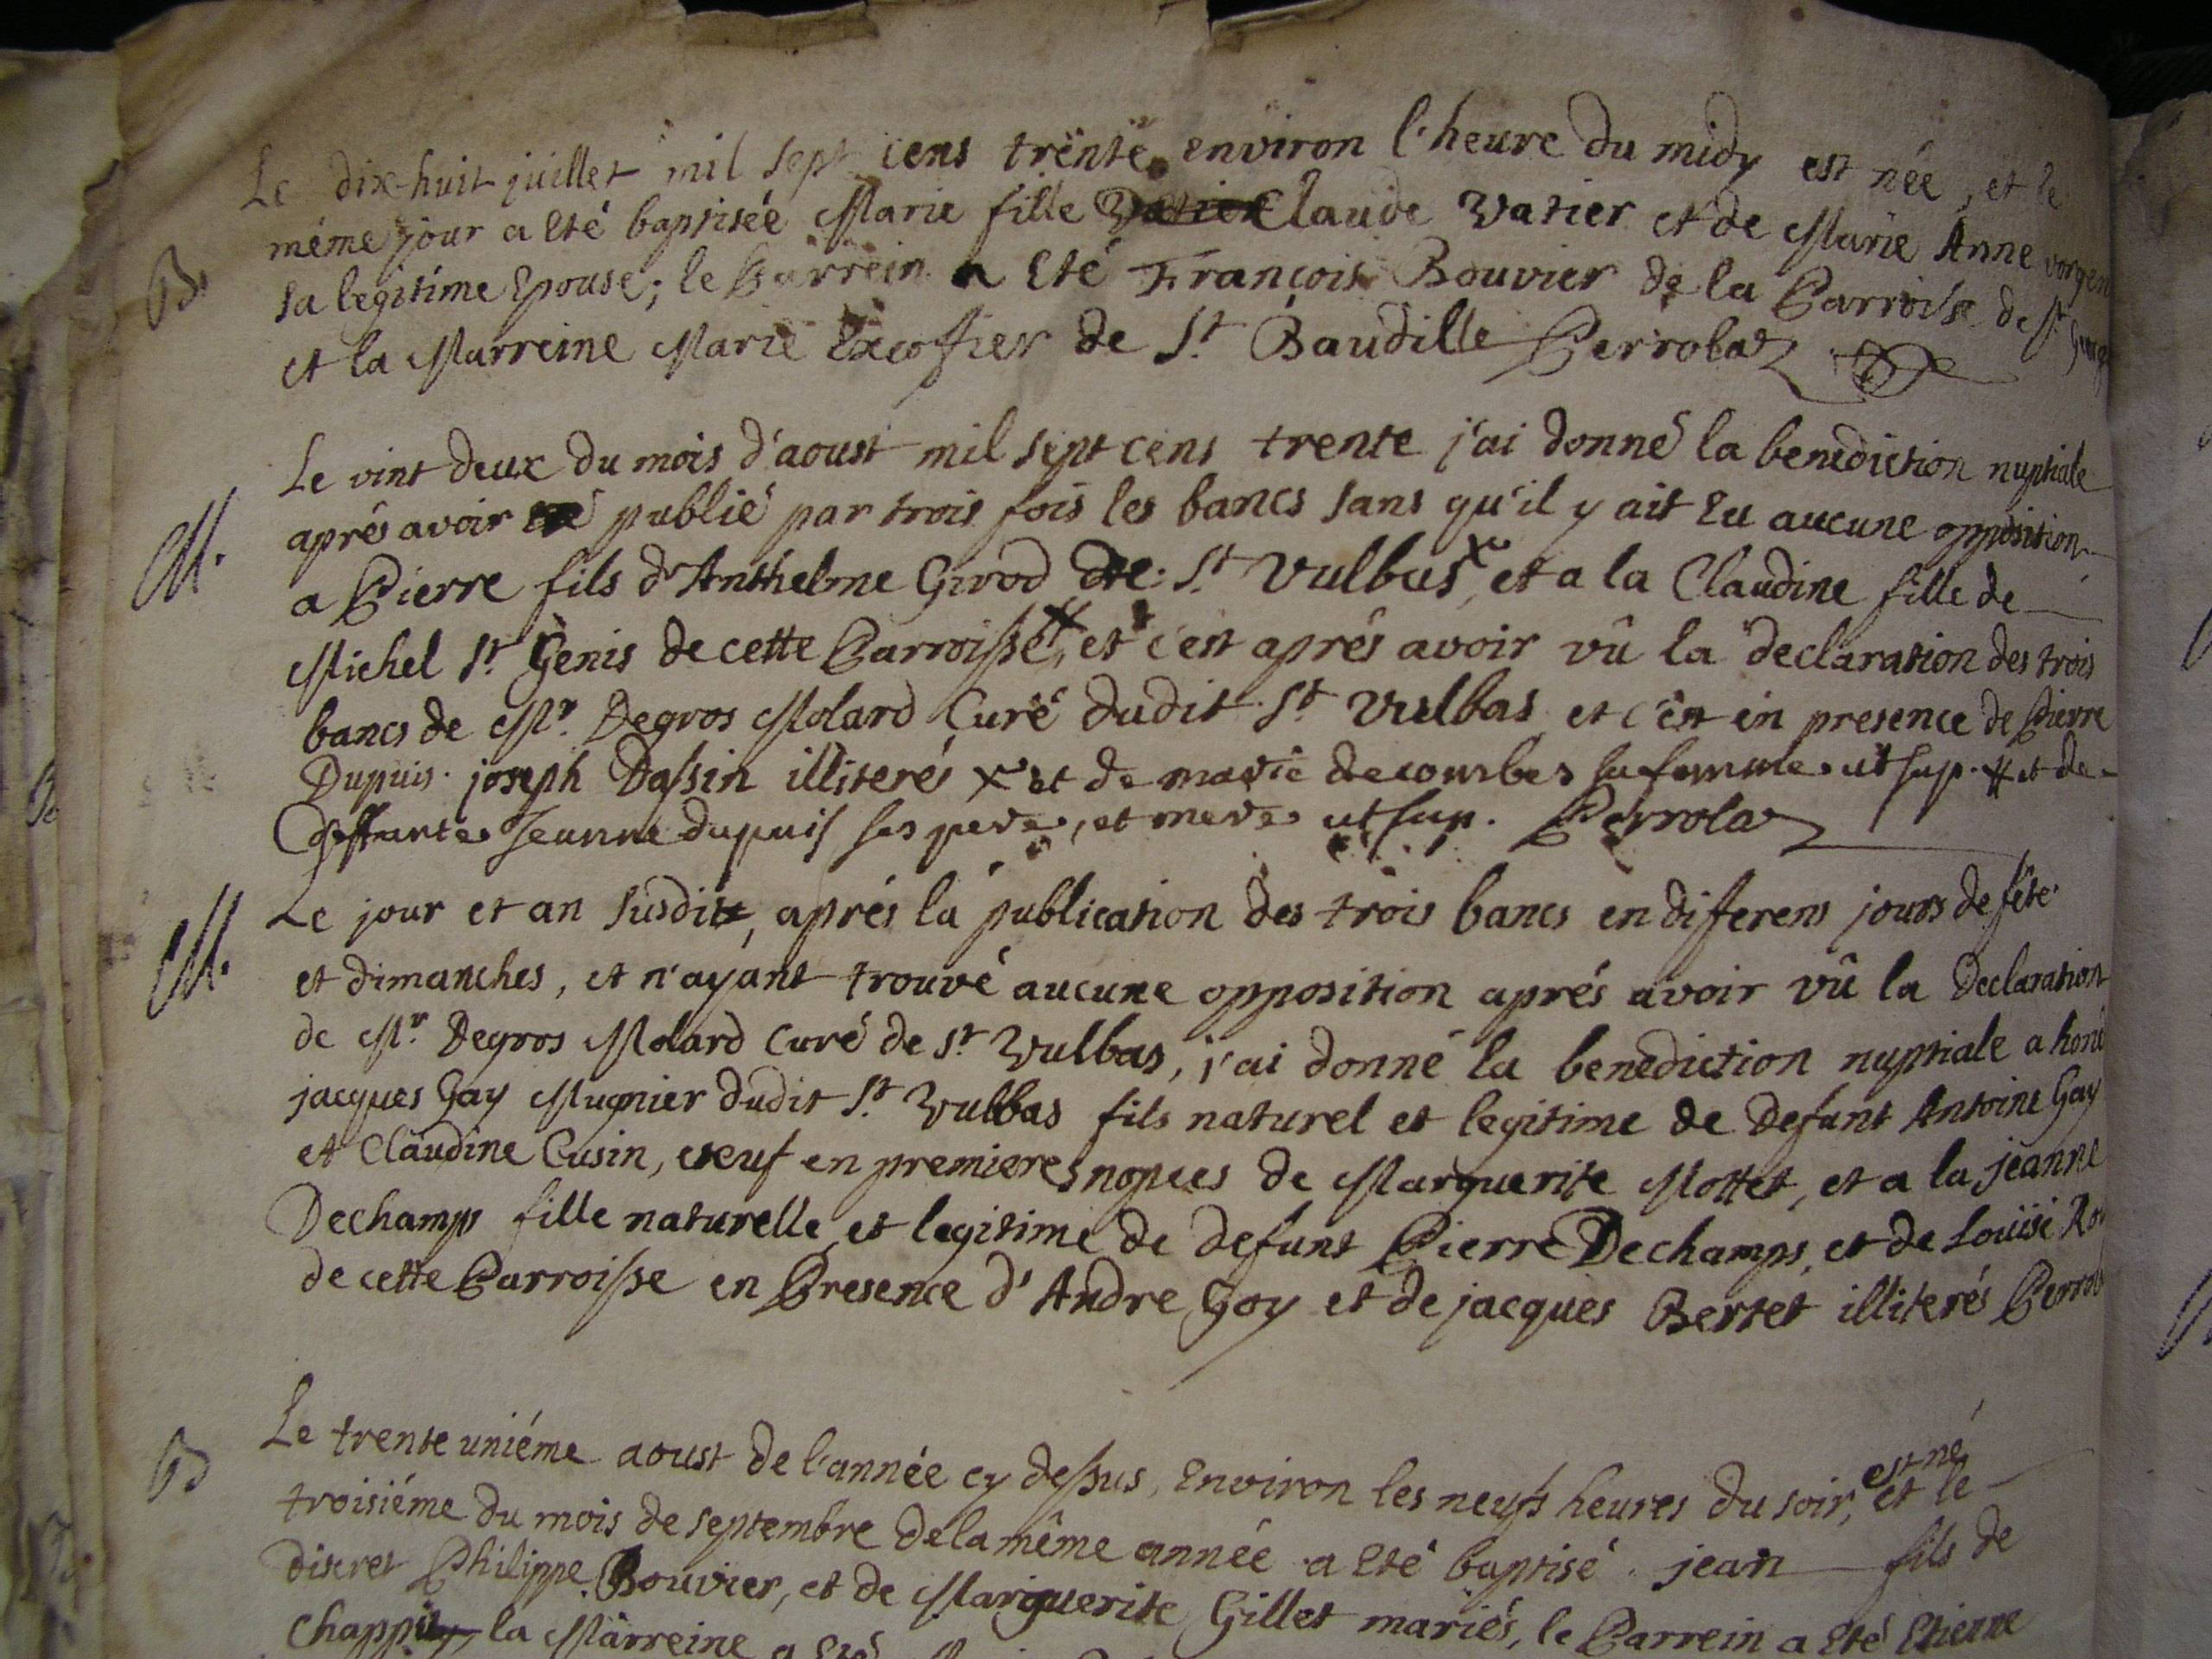 Le dix-huit juillet mil sept cens trente environ l'heure du midy est née, et le
B. même jour a eté baptisée Marie fille Claude Vatier et de Marie Anne
sa legitime epouse; le Parrein a eté François Bouvier de la Parroise de St
et la Marreine Marie Excoffier de St. Baudille Perrolaz
Le vint deux du mois d'aoust mil sept cens trente j'ai donné la benediction nuptiale
M. aprés avoir publié par trois fois les bancs sans qu'il y ait eu aucune opposition
a Pierre fils d'Anthelme Girod de St. Vulbas x et a la Claudine fille de
Michel St. Genis de cette Parroisse #, et c'est aprés avoir vû la declaration des trois
bancs de Mr. Degros Molard Curé dudit St. Vulbas et c'est en presence de Pierre
Dupuis joseph Dassin illiterés x et de marie decombes sa femme ut sup. # et de
deffunte Jeanne dupuis ses pere, et mere ut sup. Perrolaz
M. Le jour et an susdit, aprés la publication des trois bancs en differens jours de fête
et dimanches, et n'ayant trouvé aucune opposition aprés avoir vû la Declaration
de Mr. Degros Molard Curé de St. Vulbas, j'ai donné la benediction nuptiale a hone
jacques Gay Mugnier dudit St. Vulbas fils naturel et legitime de Defunt Antoine Gay
et Claudine Cusin, veuf en premieres nopces de Marguerite Mottet, et a la jeanne
Dechamps fille naturelle et legitime de defunt Pierre Dechamps, et de Louïse
de cette Parroisse en Presence d'Andre Goy et de jacques Bertet illiterés
B Le trente uniéme aoust de l'année cy dessus, Environ les neufs heures du soir, est né et le
troisiéme du mois de septembre de la même année a eté baptisé jean fils de
discret Philippe Bouvier, et de Marguerite Gillet mariés, le Parrein a eté Etienne
la Marreine a eté